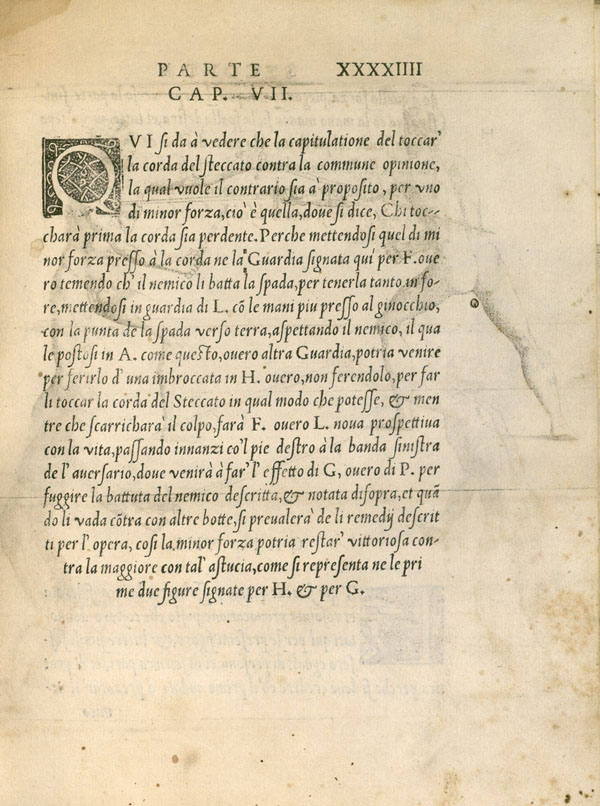 PARTE XXXXIIII
CAP. VII.
QVI si da à vedere che la capitulatione del toccar'
la corda del steccato contra la commune opinione,
la qual vuole il contrario sia à proposito, per vno
di minor forza, ciò è quella, doue si dice, Chi toc-
charà prima la corda sia perdente. Perche mettendosi quel di mi
nor forza presso à la corda ne la Guardia signata quì per F. oue
ro temendo ch' il nemico li batta la spada, per tenerla tanto in fo-
re, mettendosi in guardia di L. cõ le mani piu presso al ginocchio,
con la punta de la spada verso terra, aspettando il nemico, il qua
le postosi in A. come questo, ouero altra Guardia, potria venire
per ferirlo d' una imbroccata in H. ouero, non ferendolo, per far
li toccar la corda del Steccato in qual modo che potesse, & men
tre che scarricharà il colpo, farà F. ouero L. noua prospettiua
con la vita, passando innanzi co'l pie destro à la banda sinistra
de l' auersario, doue venirà à far' l' effetto di G, ouero di P. per
fuggire la battuta del nemico descritta, & notata disopra, et quã
do li vada cõtra con altre botte, si preualerà de li remedij descrit
ti per l' opera, cosi la minor forza potria restar' vittoriosa con-
tra la maggiore con tal' astucia, come si representa ne le pri
me due figure signate per H. & per G.